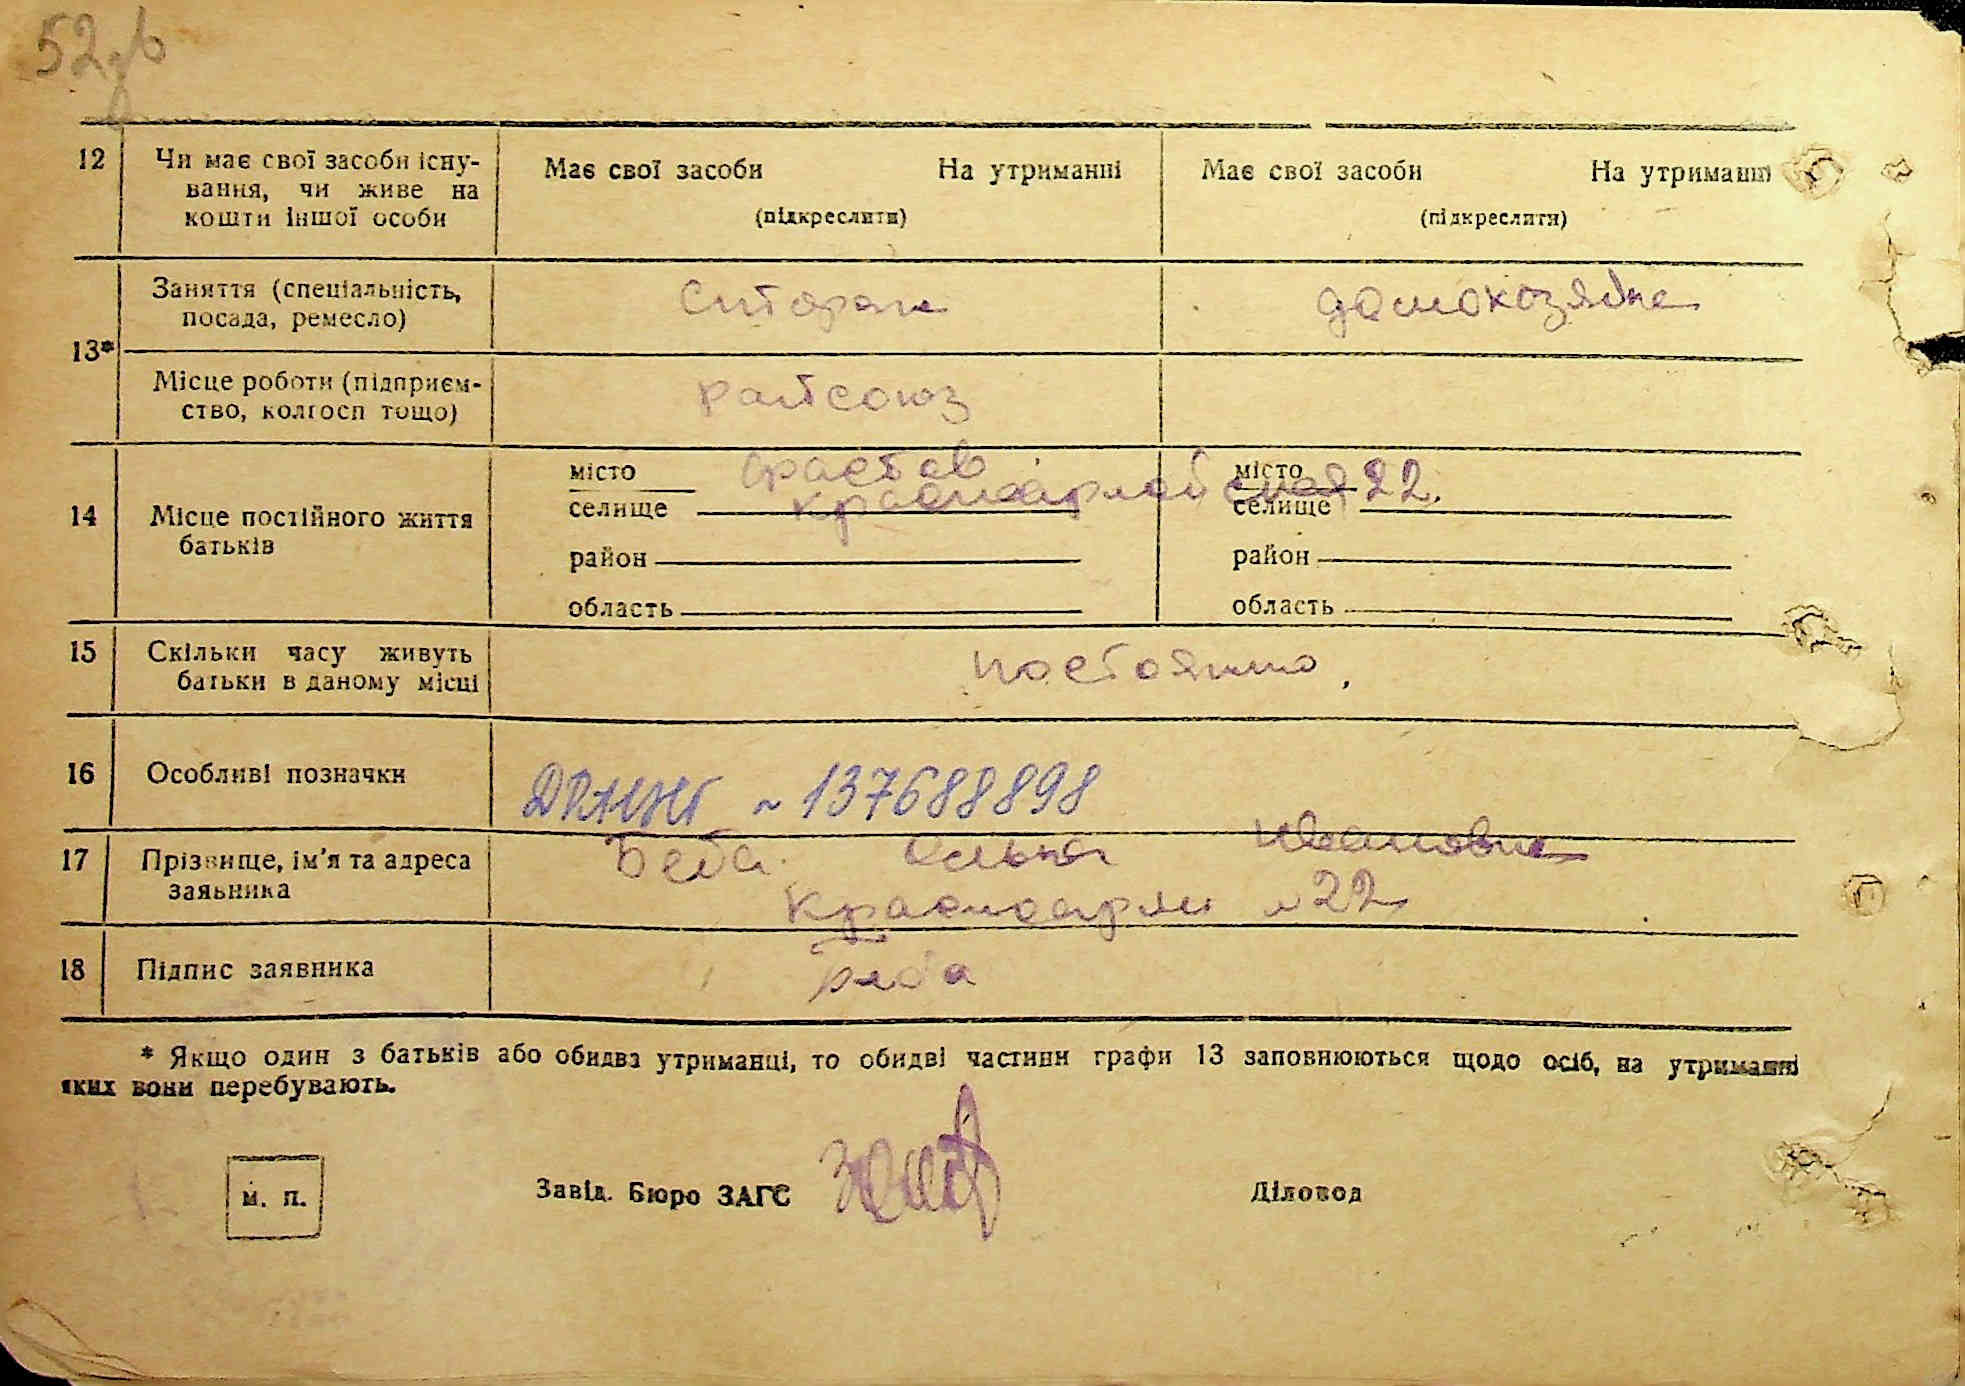 12
Чи має свої засоби існу-
вання, чи живе на
кошти іншої особи
Має свої засоби На утриманні
(підкреслити)
Має свої засоби На утриманні
(підкреслити)
13*
Заняття (спеціальність,
посада, ремесло)
домохозяйка
Місце роботи (підприєм-
ство, колгосп тощо)
райсоюз
14
Місце постійного життя
батьків
місто Фастов
селище Красноармейская 22.
район
область
місто
селище
район
область
15
Скільки часу живуть
батьки в даному місці
постоянно.
16
Особливі позначки
№ 137688898
17
Прізвище, ім'я та адреса
заявника
Ивановна
Красноарм №22
18
Підпис заявника
* Якщо один з батьків або обидва утриманці, то обидві частини графи 13 заповнюються щодо осіб, на утриманні
яких вони перебувають.
м. п.
Завід. Бюро ЗАГС
Діловод